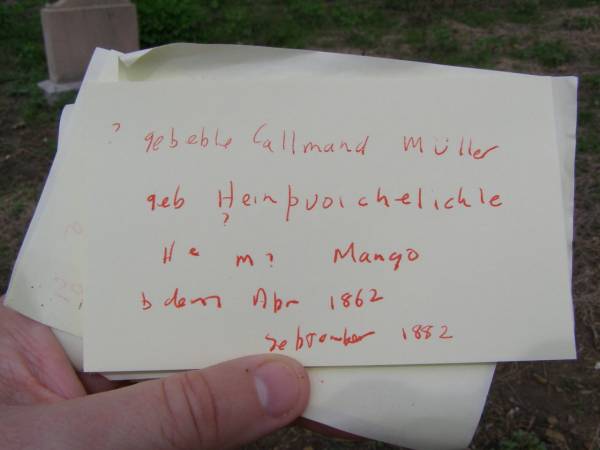 ? gebehle Callmand Müller
geb Heinpvoichelichle
?
H e m? Mango
b dem Apr 1862
September 1882